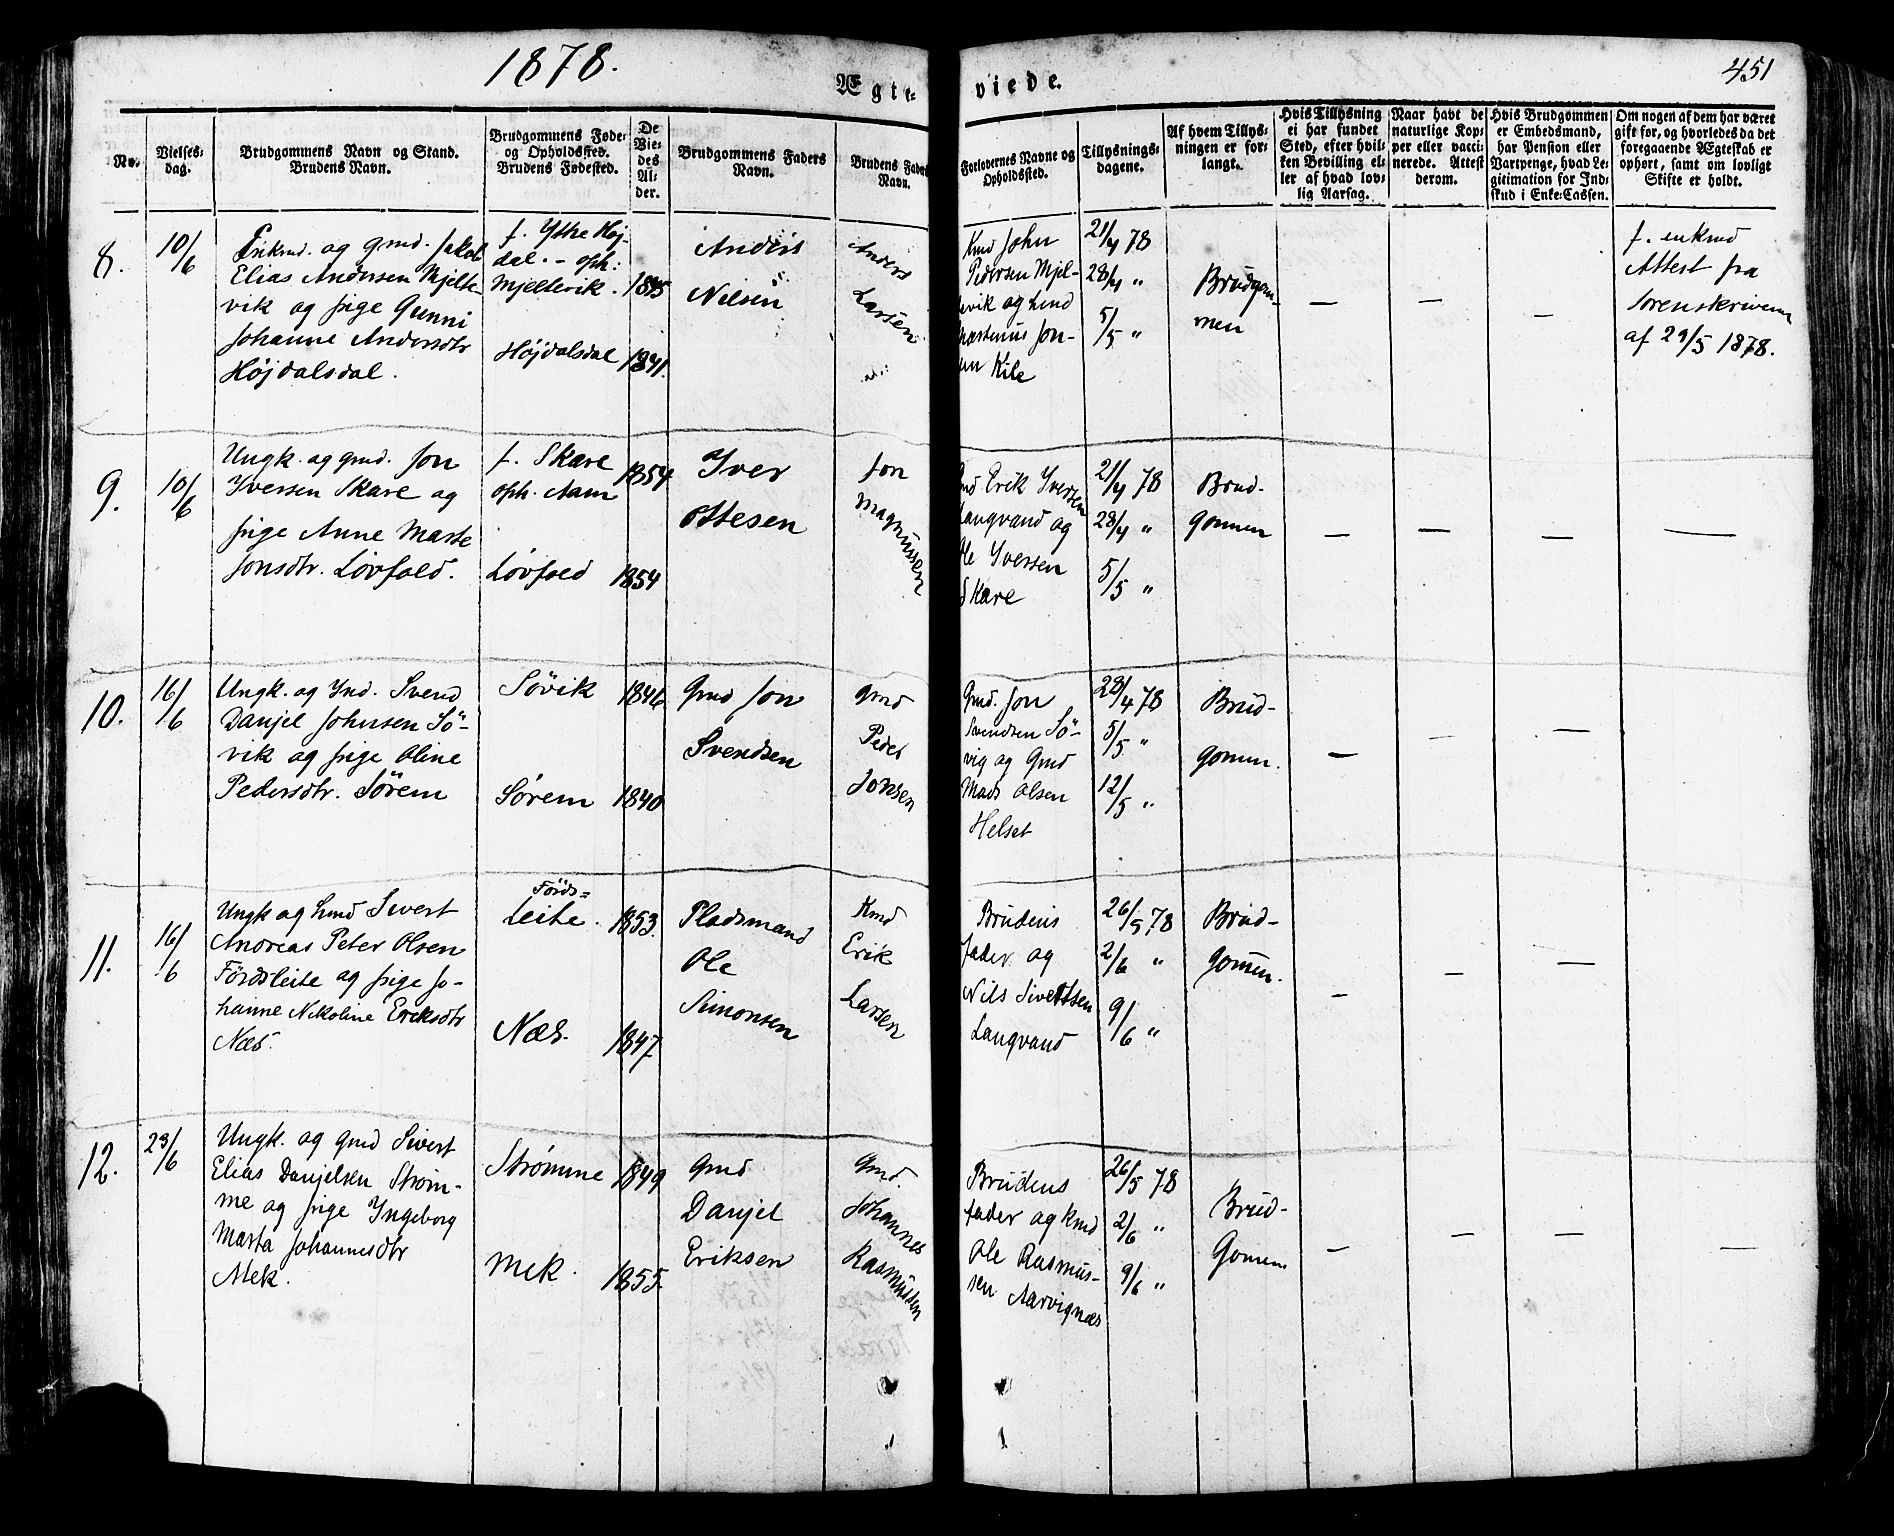 1878.
451
Ægte-
viede.
No.
Vielses-
dag.
Brudgommens Navn og Stand.
Brudens Navn.
Brudgommens Føde-
og Opholdssted.
Brudens Fødested.
De
Vie-
des
Al-
der.
Brudgommens Faders
Navn.
Brudens Faders
Navn.
Forlovernes Navne og
Opholdssted.
Tillysnings-
dagene.
Af hvem Tillys-
ningen er for-
langt.
Hvis Tillysning
ei har fundet
Sted, efter hvil-
ken Bevilling el-
ler af hvad lov-
lig Aarsag.
Naar havt de
naturlige Kop-
per eller vacci-
nerede. Attest
derom.
Hvis Brudgommen
er Embedsmand,
har Pension eller
Vartpenge, hvad Le-
gitimation for Ind-
skud i Enke-Cassen.
Om nogen af dem har været
gift før, og hvorledes da det
foregaaende Ægteskab er
ophørt, samt om lovligt
Skifte er holdt.
8.
10/6
Enkmd. og gmd. Jakob
Elias Andersen Mjelte-
vik og pige Gunni
Johanne Andersdtr
Højdalsdal.
f. Ytre Høj-
dal. - oph:
Mjeltevik.
Højdalsdal
1845
1841.
Anders
Nilsen
Anders
Larsen
Kmd John
Pedersen Mjel-
tevik og Lmd
Rasmus Jon-
sen Kile
21/4 78
28/4 "
5/5 "
Brudgom-
men
—
—
—
f. enkmd
Attest fra
Sorenskriveren
af 29/5 1878.
9.
10/6
Ungk. og gmd. Jon
Iversen Skare og
pige Anne Marte
Jonsdtr. Løvfald.
f. Skare
oph. Aam
Løvfald
1854
1854
Iver
Ottesen
Jon
Magnussen
Gmd Erik Iversen
Langvand og
Ole Iversen
Skare
21/4 78
28/4 "
5/5 "
Brud-
Gommen
—
—
—
—
10.
16/6
Ungk. og Ind. Svend
Danjel Johnsen Sö-
vik og pige Oline
Pedersdtr. Sörem
Søvik
Sørem
1846
1840
Gmd Jon
Svendsen
Gmd
Peder
Jonsen
Gmd. Jon
Svendsen Sö-
vig og Gmd
Mads Olsen
Helset
28/4 78
5/5 "
12/5 "
Brud-
gommen.
—
—
—
11.
16/6
Ungk og Lmd Sivert
Andreas Peter Olsen
Førdsleite og pige Jo-
hanne Nikoline Eriksdtr
Næs.
Førds-
Leite.
Næs.
1853.
1847.
Pladsmand
Ole
Simonsen
Kmd
Erik
Larsen
Brudens
fader og
Nils Sivertsen
Langvand
26/5 78
2/6 "
9/6 "
Brud-
Gommen.
—
—
—
12.
23/6
Ungk. og gmd Sivert
Elias Danjelsen Strøm-
me og pige Ingeborg
Marta Johannesdtr
Mek.
Strømme
Mek.
1849
1855.
Gmd
Danjel
Eriksen
Gmd.
Johannes
Rasmussen
Brudens
fader og Kmd
Ole Rasmus-
sen Aarvignæs
26/5 78
2/6 "
9/6 "
Brud-
Gommen
—
—
—
—